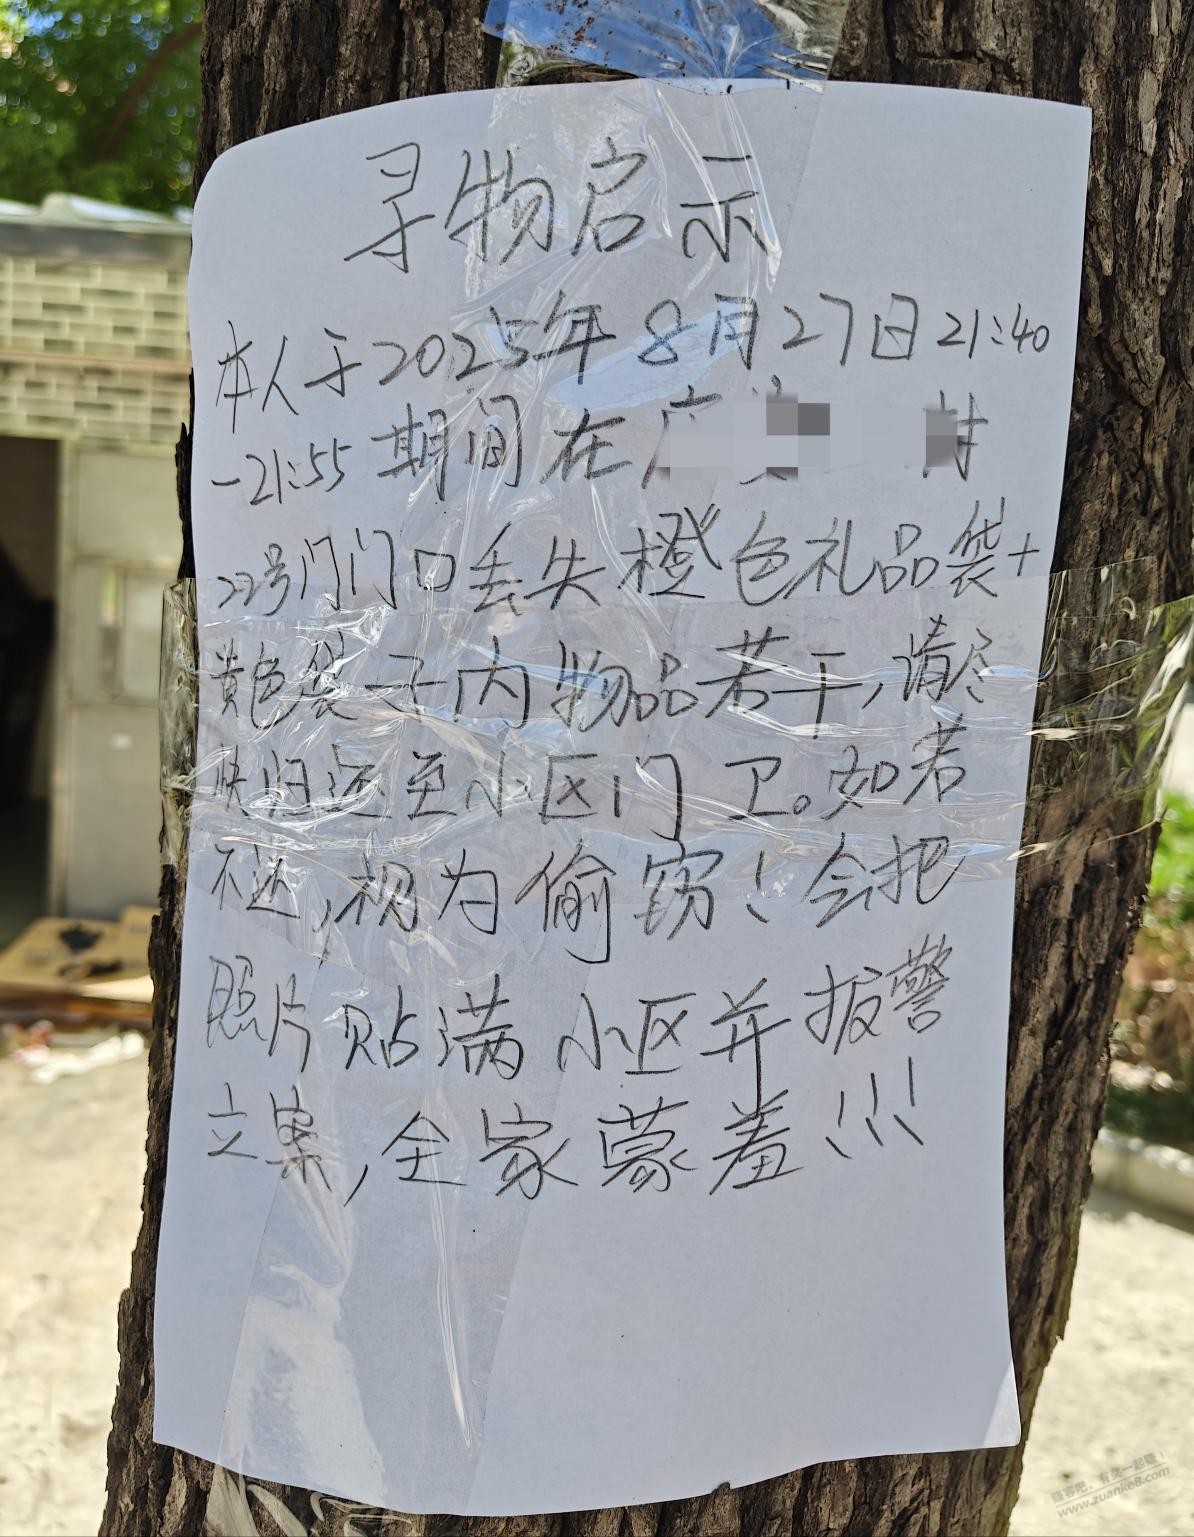 寻物启示
本人于2025年8月27日21:40
-21:55期间在广 村
22号门门口丢失橙色礼品袋+
黄色袋子内物品若干,请尽
快归还至小区门卫。如若
不还,视为偷窃!会把
照片贴满小区并报警
立案,全家蒙羞!!!
赚客吧，有奖一起赚！
www.zuanke8.com